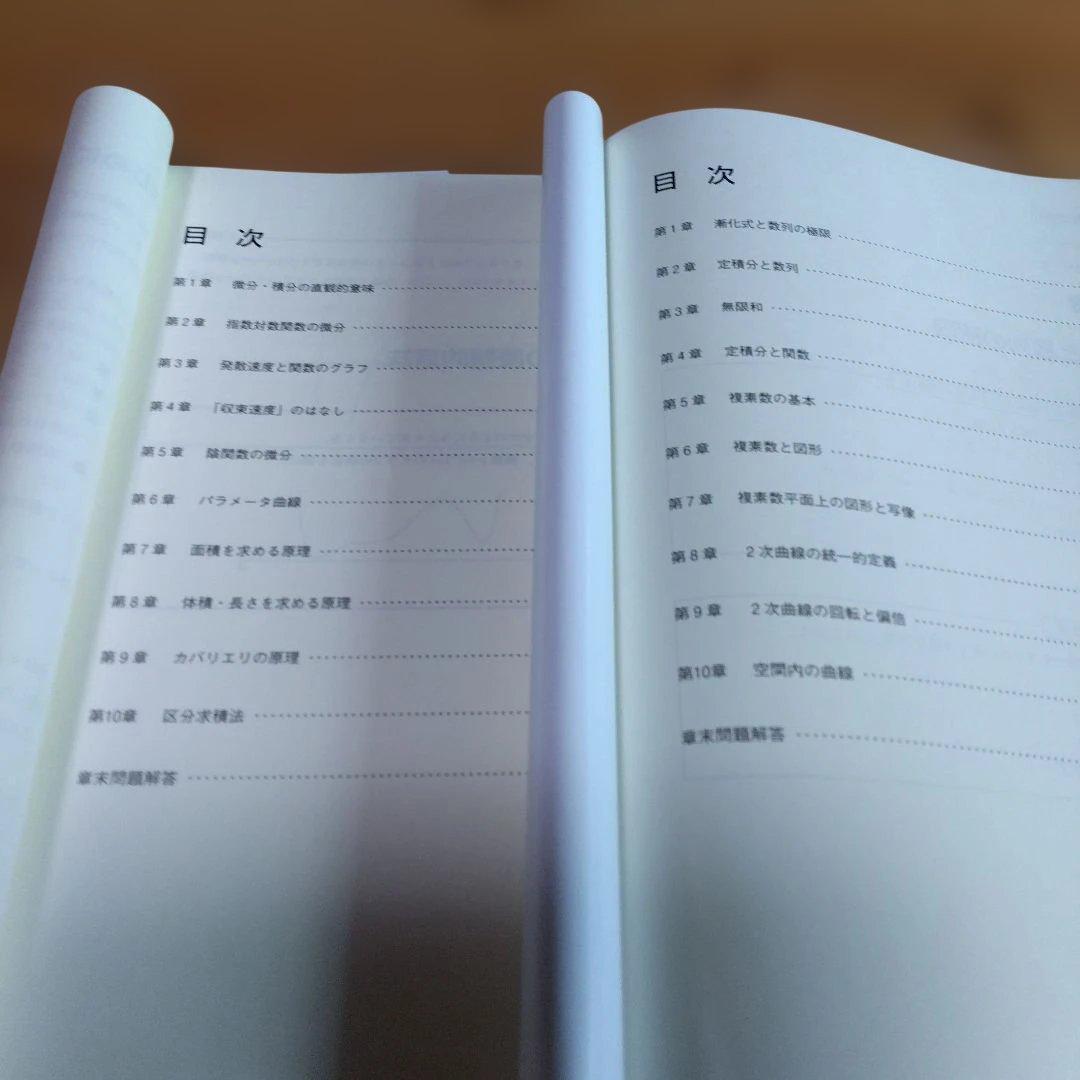 目 次
第1章 微分・積分の直観的意味
第2章 指数対数関数の微分
第3章 発散速度と関数のグラフ
第4章 「収束速度」のはなし
第5章 陰関数の微分
第6章 パラメータ曲線
第7章 面積を求める原理
第8章 体積・長さを求める原理
第9章 カバリエリの原理
第10章 区分求積法
章末問題解答
目 次
第1章 漸化式と数列の極限
第2章 定積分と数列
第3章 無限和
第4章 定積分と関数
第5章 複素数の基本
第6章 複素数と図形
第7章 複素数平面上の図形と写像
第8章 2次曲線の統一的定義
第9章 2次曲線の回転と偏倍
第10章 空間内の曲線
章末問題解答